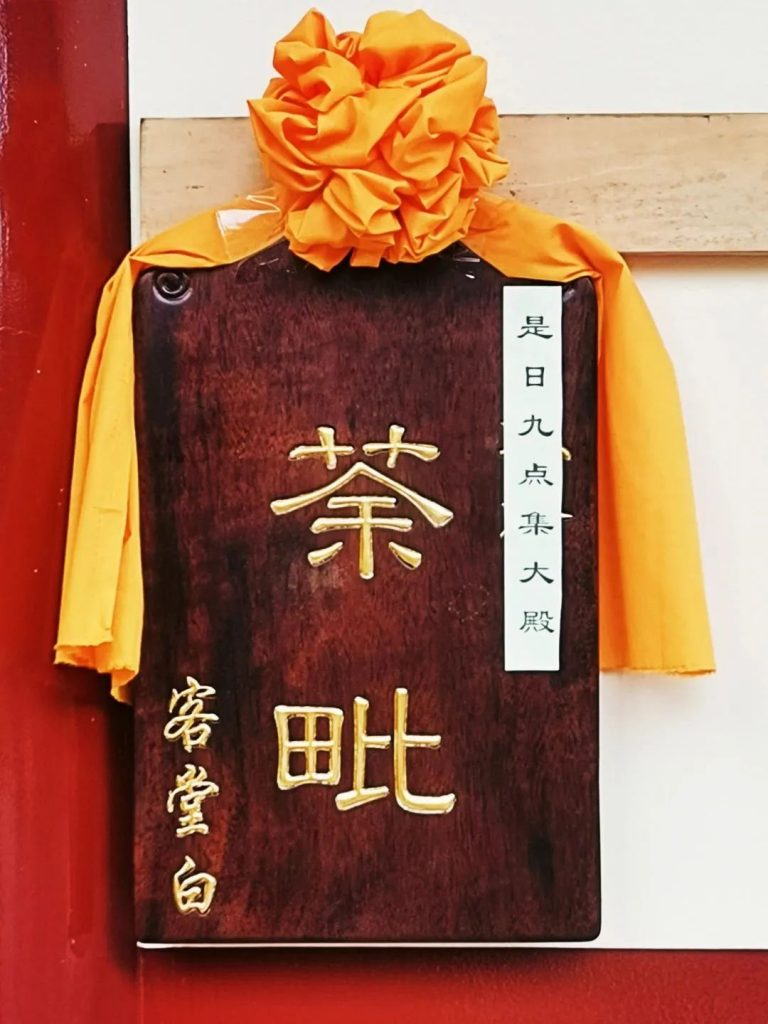 是日九点集大殿
荼毗
客堂白